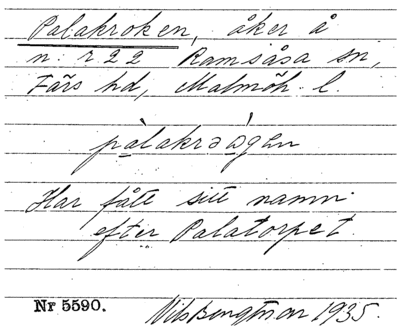 Palakroken, åker å
n:r 22 Ramsåsa sn,
Färs hd, Malmöh. l.
pàlakrəàgən
Har fått sitt namn
efter Palatorpet.
Nr 5590. Nils Bengtsson 1935.